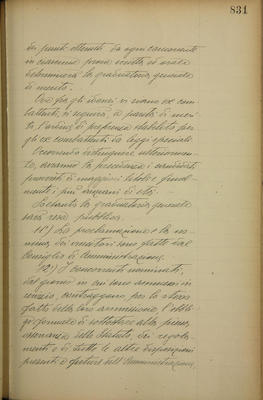 831
dei punti ottenuti da ogni concorrente
in ciascuna prova scritta ed orale
determinerà la graduatoria generale
di merito.
Ove fra gli idonei vi siano ex com
battenti, si seguirà, a parità di meri
to, l'ordine di preferenza stabilito per
gli ex combattenti da leggi speciali.
to, avranno la precedenza i candidati
provvisti di maggiori titoli e final
mente i più anziani di età.
La graduatoria generale
sarà resa pubblica.
11°) La proclamazione e la no
mina dei vincitori sono fatte dal
Consiglio di Amministrazione.
12°) I concorrenti nominati,
dal giorno in cui sono ammessi in
servizio, contraggono per lo stesso
fatto della loro ammissione l'obbli
go formale di sottostare alla piena
osservanza dello Statuto, dei regola
menti e di tutte le altre disposizioni
presenti e future dell'Amministrazione